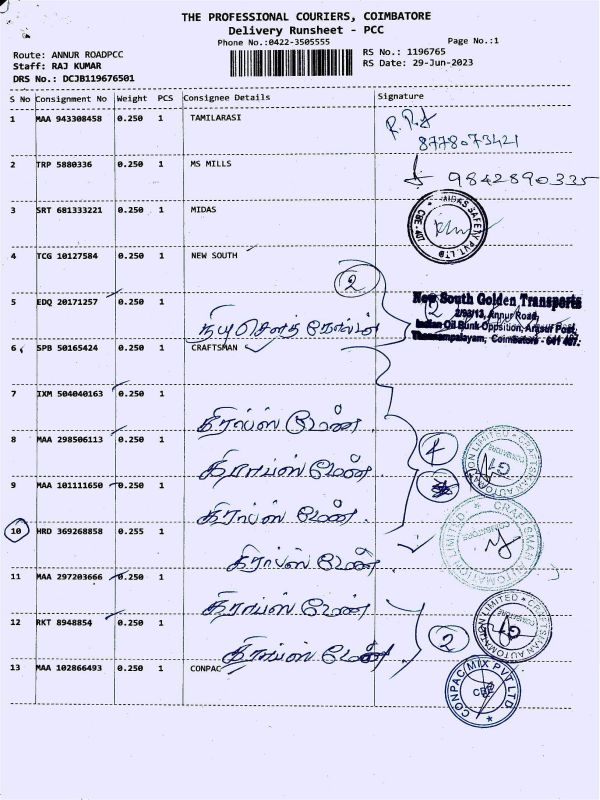 THE PROFESSIONAL COURIERS, COIMBATORE
Delivery Runsheet - PCC
Phone No.:0422-3505555
Page No.:1
Route: ANNUR ROADPCC
RS No.: 1196765
Staff: RAJ KUMAR
RS Date: 29-Jun-2023
DRS No.: DCJB119676501
S No Consignment No Weight PCS Consignee Details Signature
1 MAA 943308458 0.250 1 TAMILARASI
8778073421
2 TRP 5880336 0.250 1 MS MILLS
9842890335
3 SRT 681333221 0.250 1 MIDAS
MIDAS SAFETY PVT. LTD
4 TCG 10127584 0.250 1 NEW SOUTH
2
5 EDQ 20171257 0.250 1
New South Golden Transports
2/93/13, Annur Road,
நியு சௌத் கோல்டன்
6 SPB 50165424 0.250 1 CRAFTSMAN
7 IXM 504040163 0.250 1
கிராப்ஸ் மேன்
8 MAA 298506113 0.250 1
4
CRAFTSMAN AUTOMATION LIMITED
G1
கிராப்ஸ் மேன்
9 MAA 101111650 0.250 1
கிராப்ஸ் மேன்
10 HRD 369268858 0.255 1
CRAFTSMAN AUTOMATION LIMITED
கிராப்ஸ் மேன்
11 MAA 297203666 0.250 1
கிராப்ஸ் மேன்
12 RKT 8948854 0.250 1
2
CRAFTSMAN AUTOMATION LIMITED
கிராப்ஸ் மேன்
13 MAA 102866493 0.250 1 CONPAC
CONPAC MIX PVT LTD
CBE